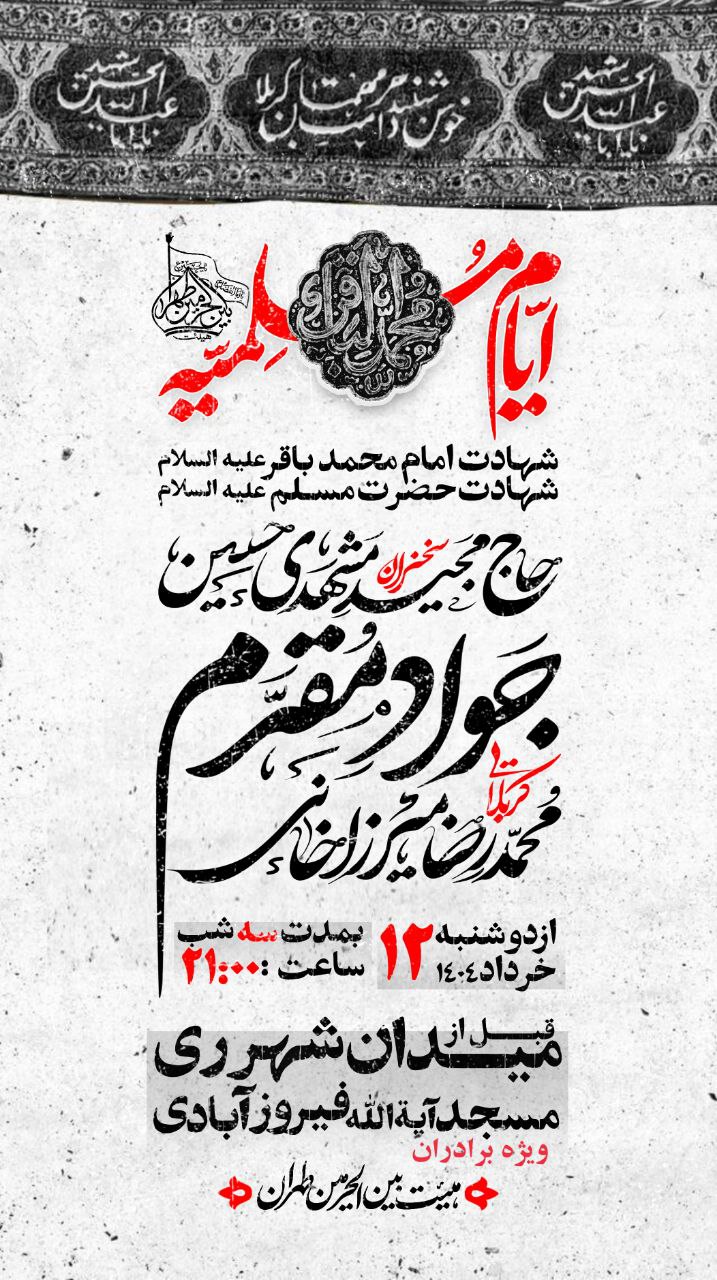 شهید
عبدالله الحسین
یا ابا
خوش شنیدم
شهید
عبدالله الحسین
یا ابا
ایام مسلمیّه
محمد
الباقر
بین الحرمین طهران
هیئت
شهادت امام محمد باقر علیه السلام
شهادت حضرت مسلم علیه السلام
سخنران
حاج مجید مشهدی حسین
جواد مقدّم
کربلائی
محمّدرضا میرزاخانی
از دوشنبه ۱۲ خرداد ۱۴۰۴
بمدت سه شب
ساعت : ۲۱:۰۰
قبل از میدان شهر ری
مسجد آیة الله فیروزآبادی
ویژه برادران
هیئت بین الحرمین طهران